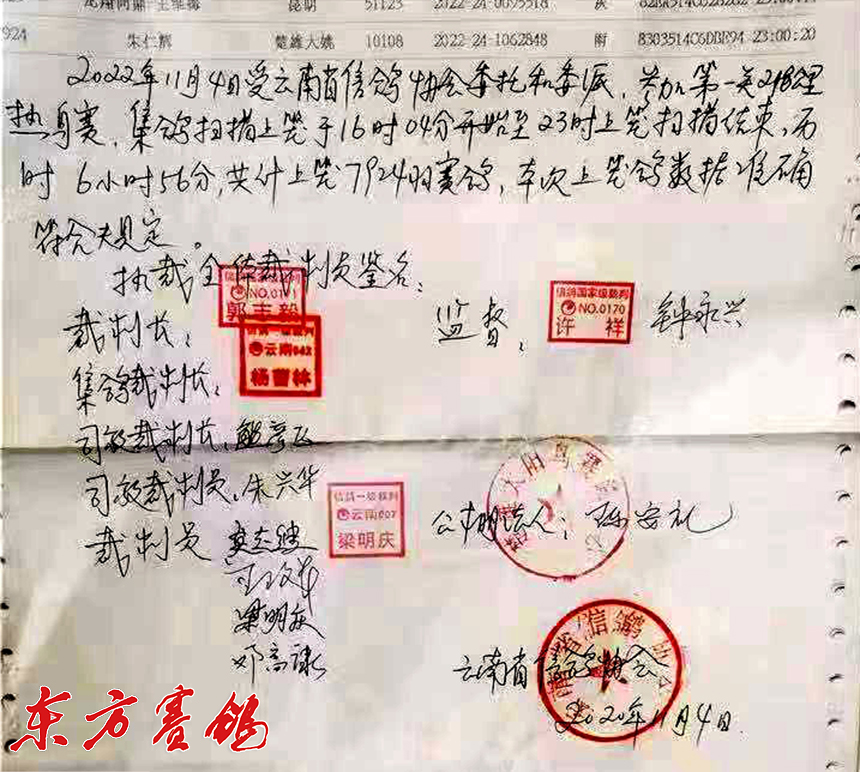 昆明 51123 2022-24-0095518 灰
924 朱仁辉 楚雄大姚 10108 2022-24-1062848 雨 8303514C6DBE94 23:00:20
2022年11月4日受云南省信鸽协会委托和委派，参加第一关218公里
热身赛，集鸽扫描上笼于16时04分开始至23时上笼扫描结束，历
时 6小时56分，共计上笼7924羽赛鸽，本次上笼鸽数据准确
符合规定。
执裁全体裁判员签名：
信鸽国家级裁判
NO.0171
郭志毅
裁判长：
监督：
信鸽国家级裁判
NO.0170
许祥
钟永兴
信鸽一级裁判
云南042
杨曹林
集鸽裁判长：
司放裁判长：
司放裁判员：朱兴华
信鸽一级裁判
云南007
梁明庆
裁判员
梁明庆
邓高
太阳鸟赛
安礼
云南省信鸽协会
2020年11月4日
东方赛鸽